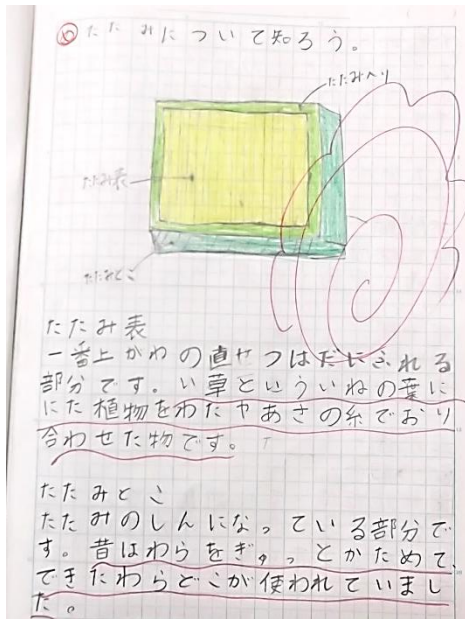 めたたみについて知ろう。
たたみへり
たたみ表
たたみどこ
たたみ表
一番上がわの直せつはだにふれる
部分です。い草といういねの葉に
にた植物をわたやあさの糸でおり
合わせた物です。
たたみとこ
たたみのしんになっている部分で
す。昔はわらをぎゅっとかためて、
できたわらどこが使われていまし
た。